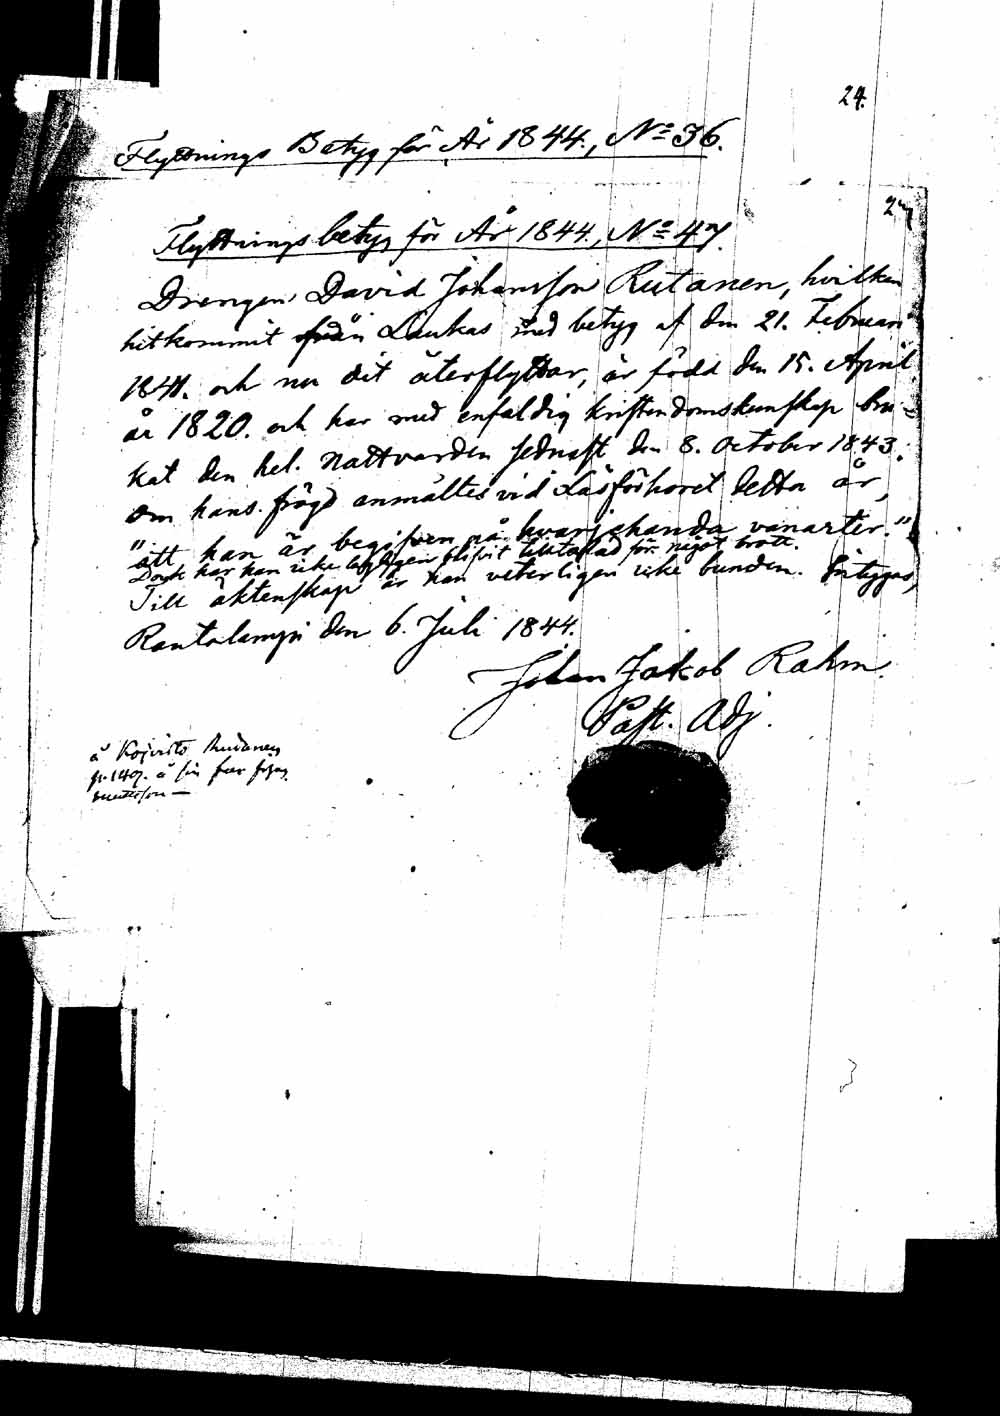 24.
Flyttnings Betyg för År 1844., No 36.
27
Flyttningsbetyg för År 1844., No 47.
Drengen David Johansson Rutanen, hvilken
hitkommit från Laukas med betyg af den 21. Februari
1841. och nu dit återflyttar, är född den 15. April
år 1820. och har med enfaldig kristendomskunskap bru-
kat den hel. Nattvarden sednast den 8. October 1843.
Om hans frägd anmältes vid Läsförhöret detta år,
"att han är begifven på hvarjehanda vanarter."
Dock har han icke lagligen blifvit tilltalad för något brott.
Till äktenskap är han veterligen icke bunden. Intygas,
Rautalampi den 6. Juli 1844.
Johan Jakob Rahm.
Past. Adj.
å Kojvisto Rudanen
p. 149. å sin